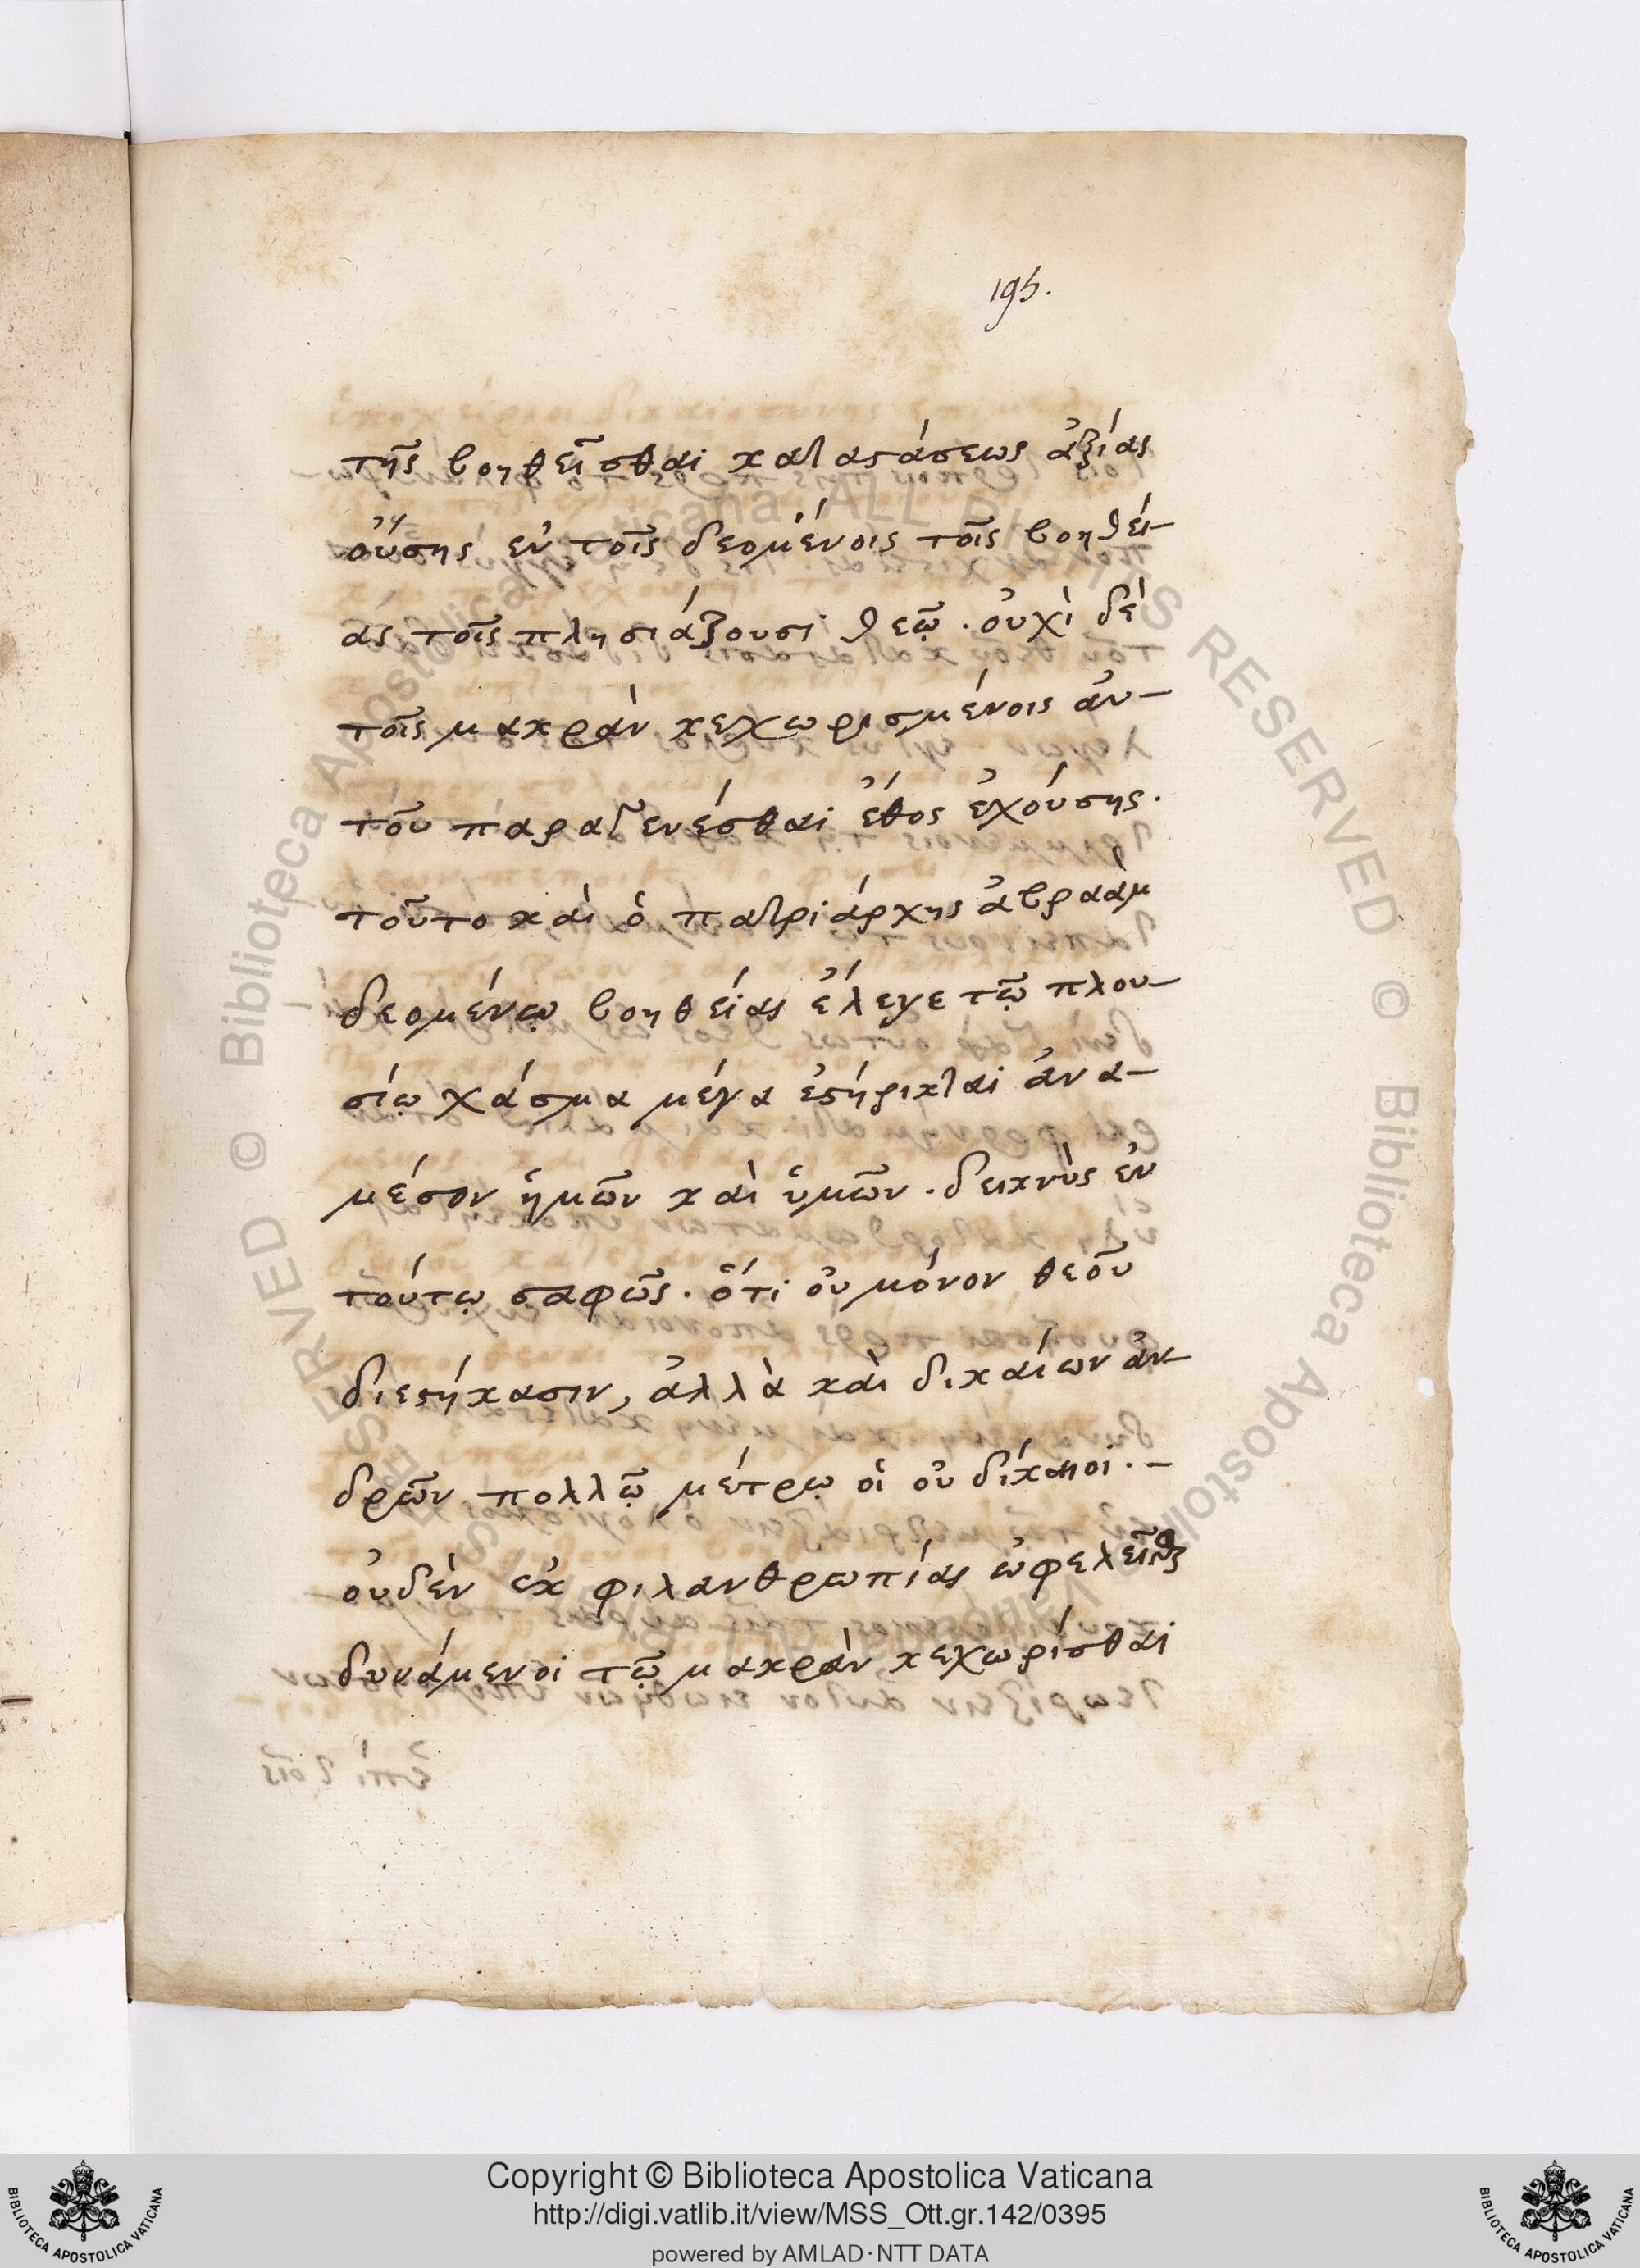 195.
τῆς βοηθεῖσθαι καταστάσεως ἀξίας
οὔσης ἐν τοῖς δεομένοις τοῖς βοηθεί-
ας τοῖς πλησιάζουσι θεῷ. οὐχὶ δὲ
τοῖς μακρὰν κεχωρισμένοις ἀυ-
τοῦ παραγενέσθαι ἔθος ἐχούσης.
τοῦτο καὶ ὁ πατριάρχης ἀβραὰμ
δεομένῳ βοηθείας ἔλεγε τῷ πλου-
σίῳ χάσμα μέγα ἐστήρικται ἀνα-
μέσον ἡμῶν καὶ ὑμῶν. δεικνὺς ἐν
τούτῳ σαφῶς. ὅτι οὐ μόνον θεοῦ
διεστήκασιν, ἀλλὰ καὶ δικαίων ἀν-
δρῶν πολλῷ μέτρῳ οἱ οὐ δίκαιοι.-
οὐδὲν ἐκ φιλανθρωπίας ὠφελεῖσθαι
δυνάμενοι τῷ μακρὰν κεχωρίσθαι
Copyright © Biblioteca Apostolica Vaticana
http://digi.vatlib.it/view/MSS_Ott.gr.142/0395
powered by AMLAD·NTT DATA
BIBLIOTECA APOSTOLICA VATICANA
BIBLIOTECA APOSTOLICA VATICANA